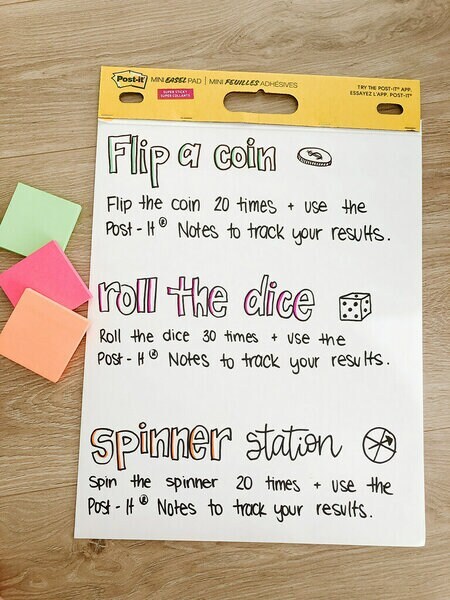 Post-it® MINI EASEL PAD | MINI FEUILLES ADHÉSIVES
SUPER STICKY
SUPER COLLANTS
TRY THE POST-IT® APP.
ESSAYEZ L'APP. POST-IT®
Flip a coin
Flip the coin 20 times + use the
Post-It® Notes to track your results.
roll the dice
Roll the dice 30 times + use the
Post-It® Notes to track your results.
spinner station
Spin the spinner 20 times + use the
Post-It® Notes to track your results.